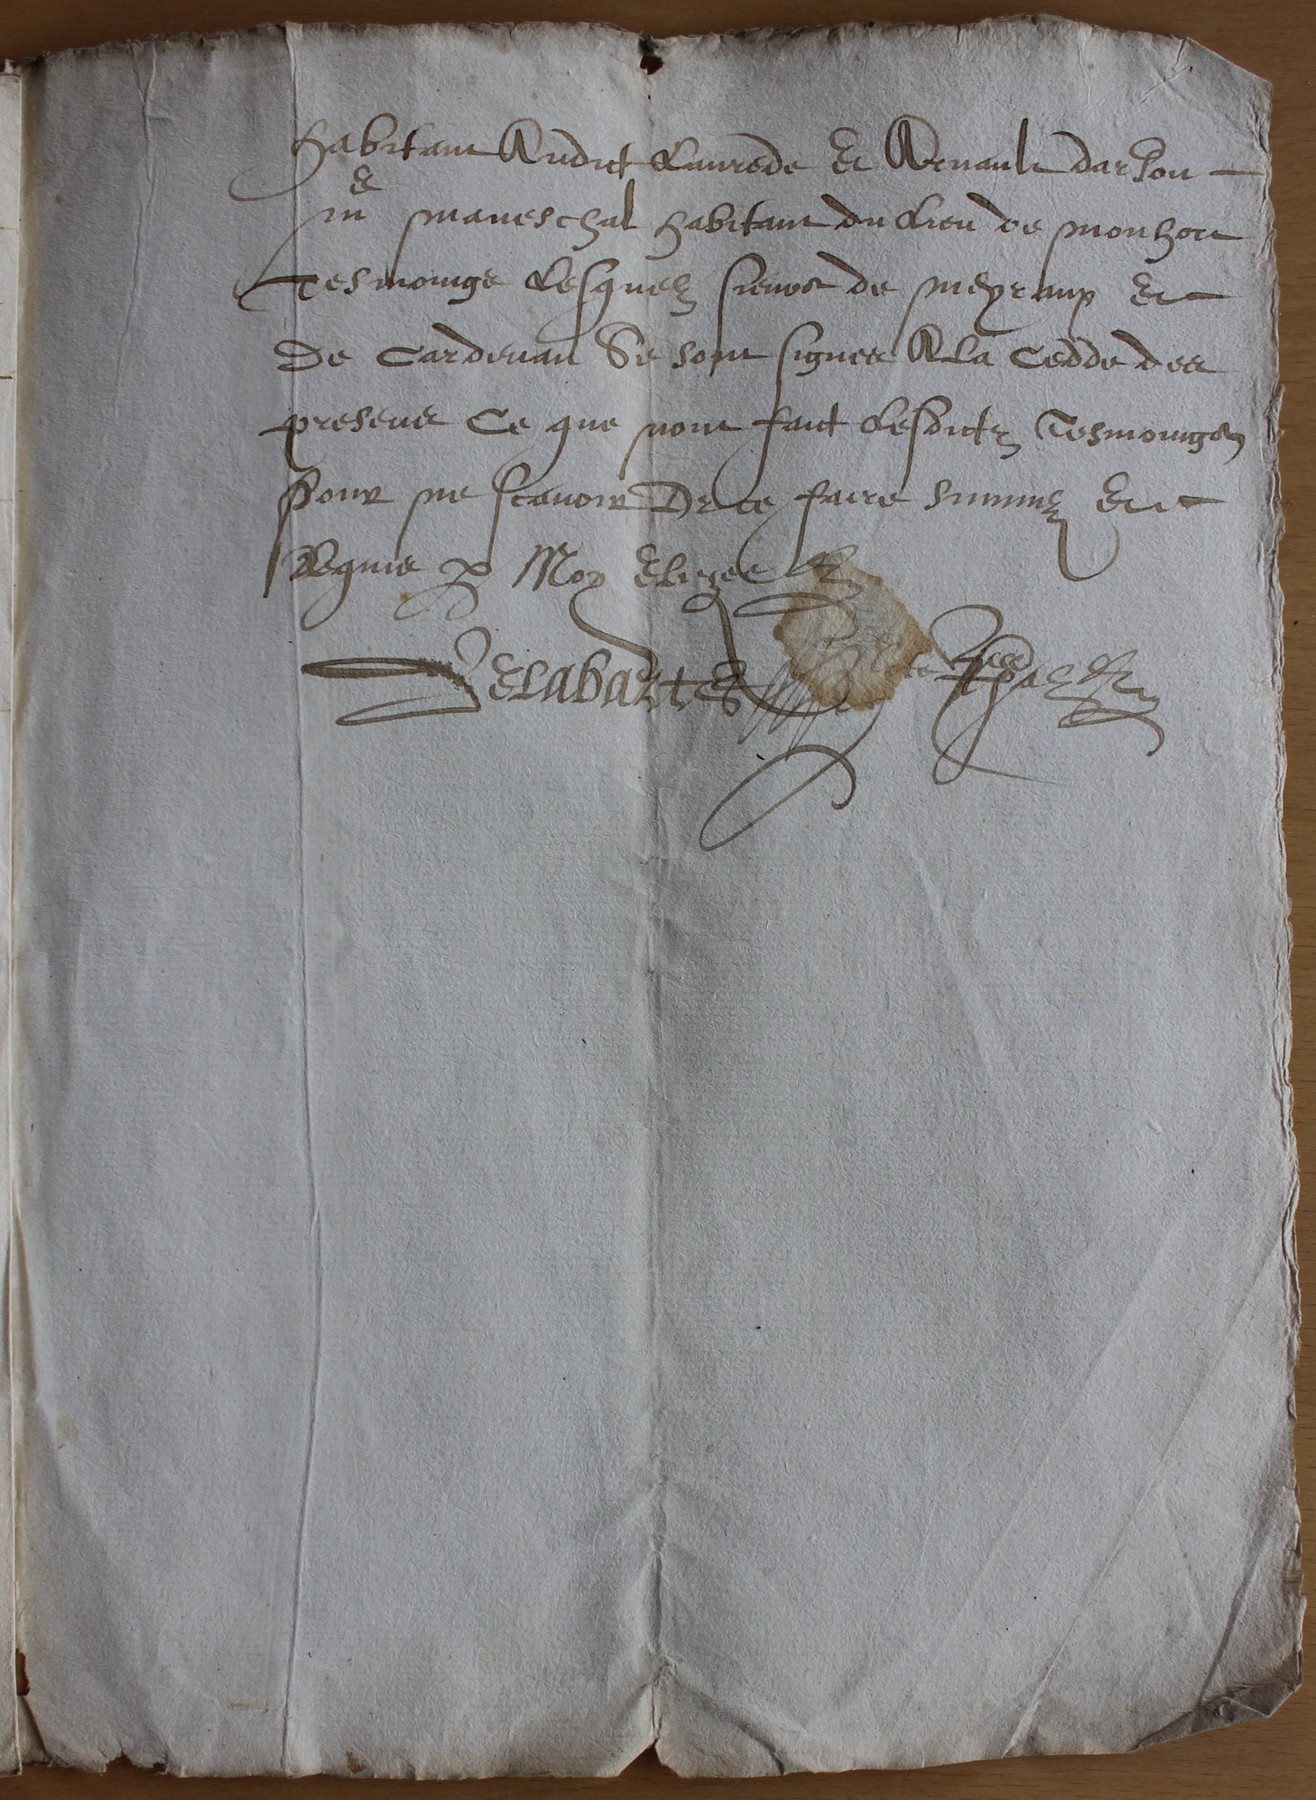 habitant Audict Laurede et Arnault darhou
me mareschal habitant du Lieu de monhort
Tesmoings Lesquelz sieurs de meyranx et
De Cardenau Se sont signes A La Cedde des
presens Ce que nont faict Lesdictz Tesmoings
Pour ne scavoir De ce faire Sommez et
Requis p Moy
Delabartes